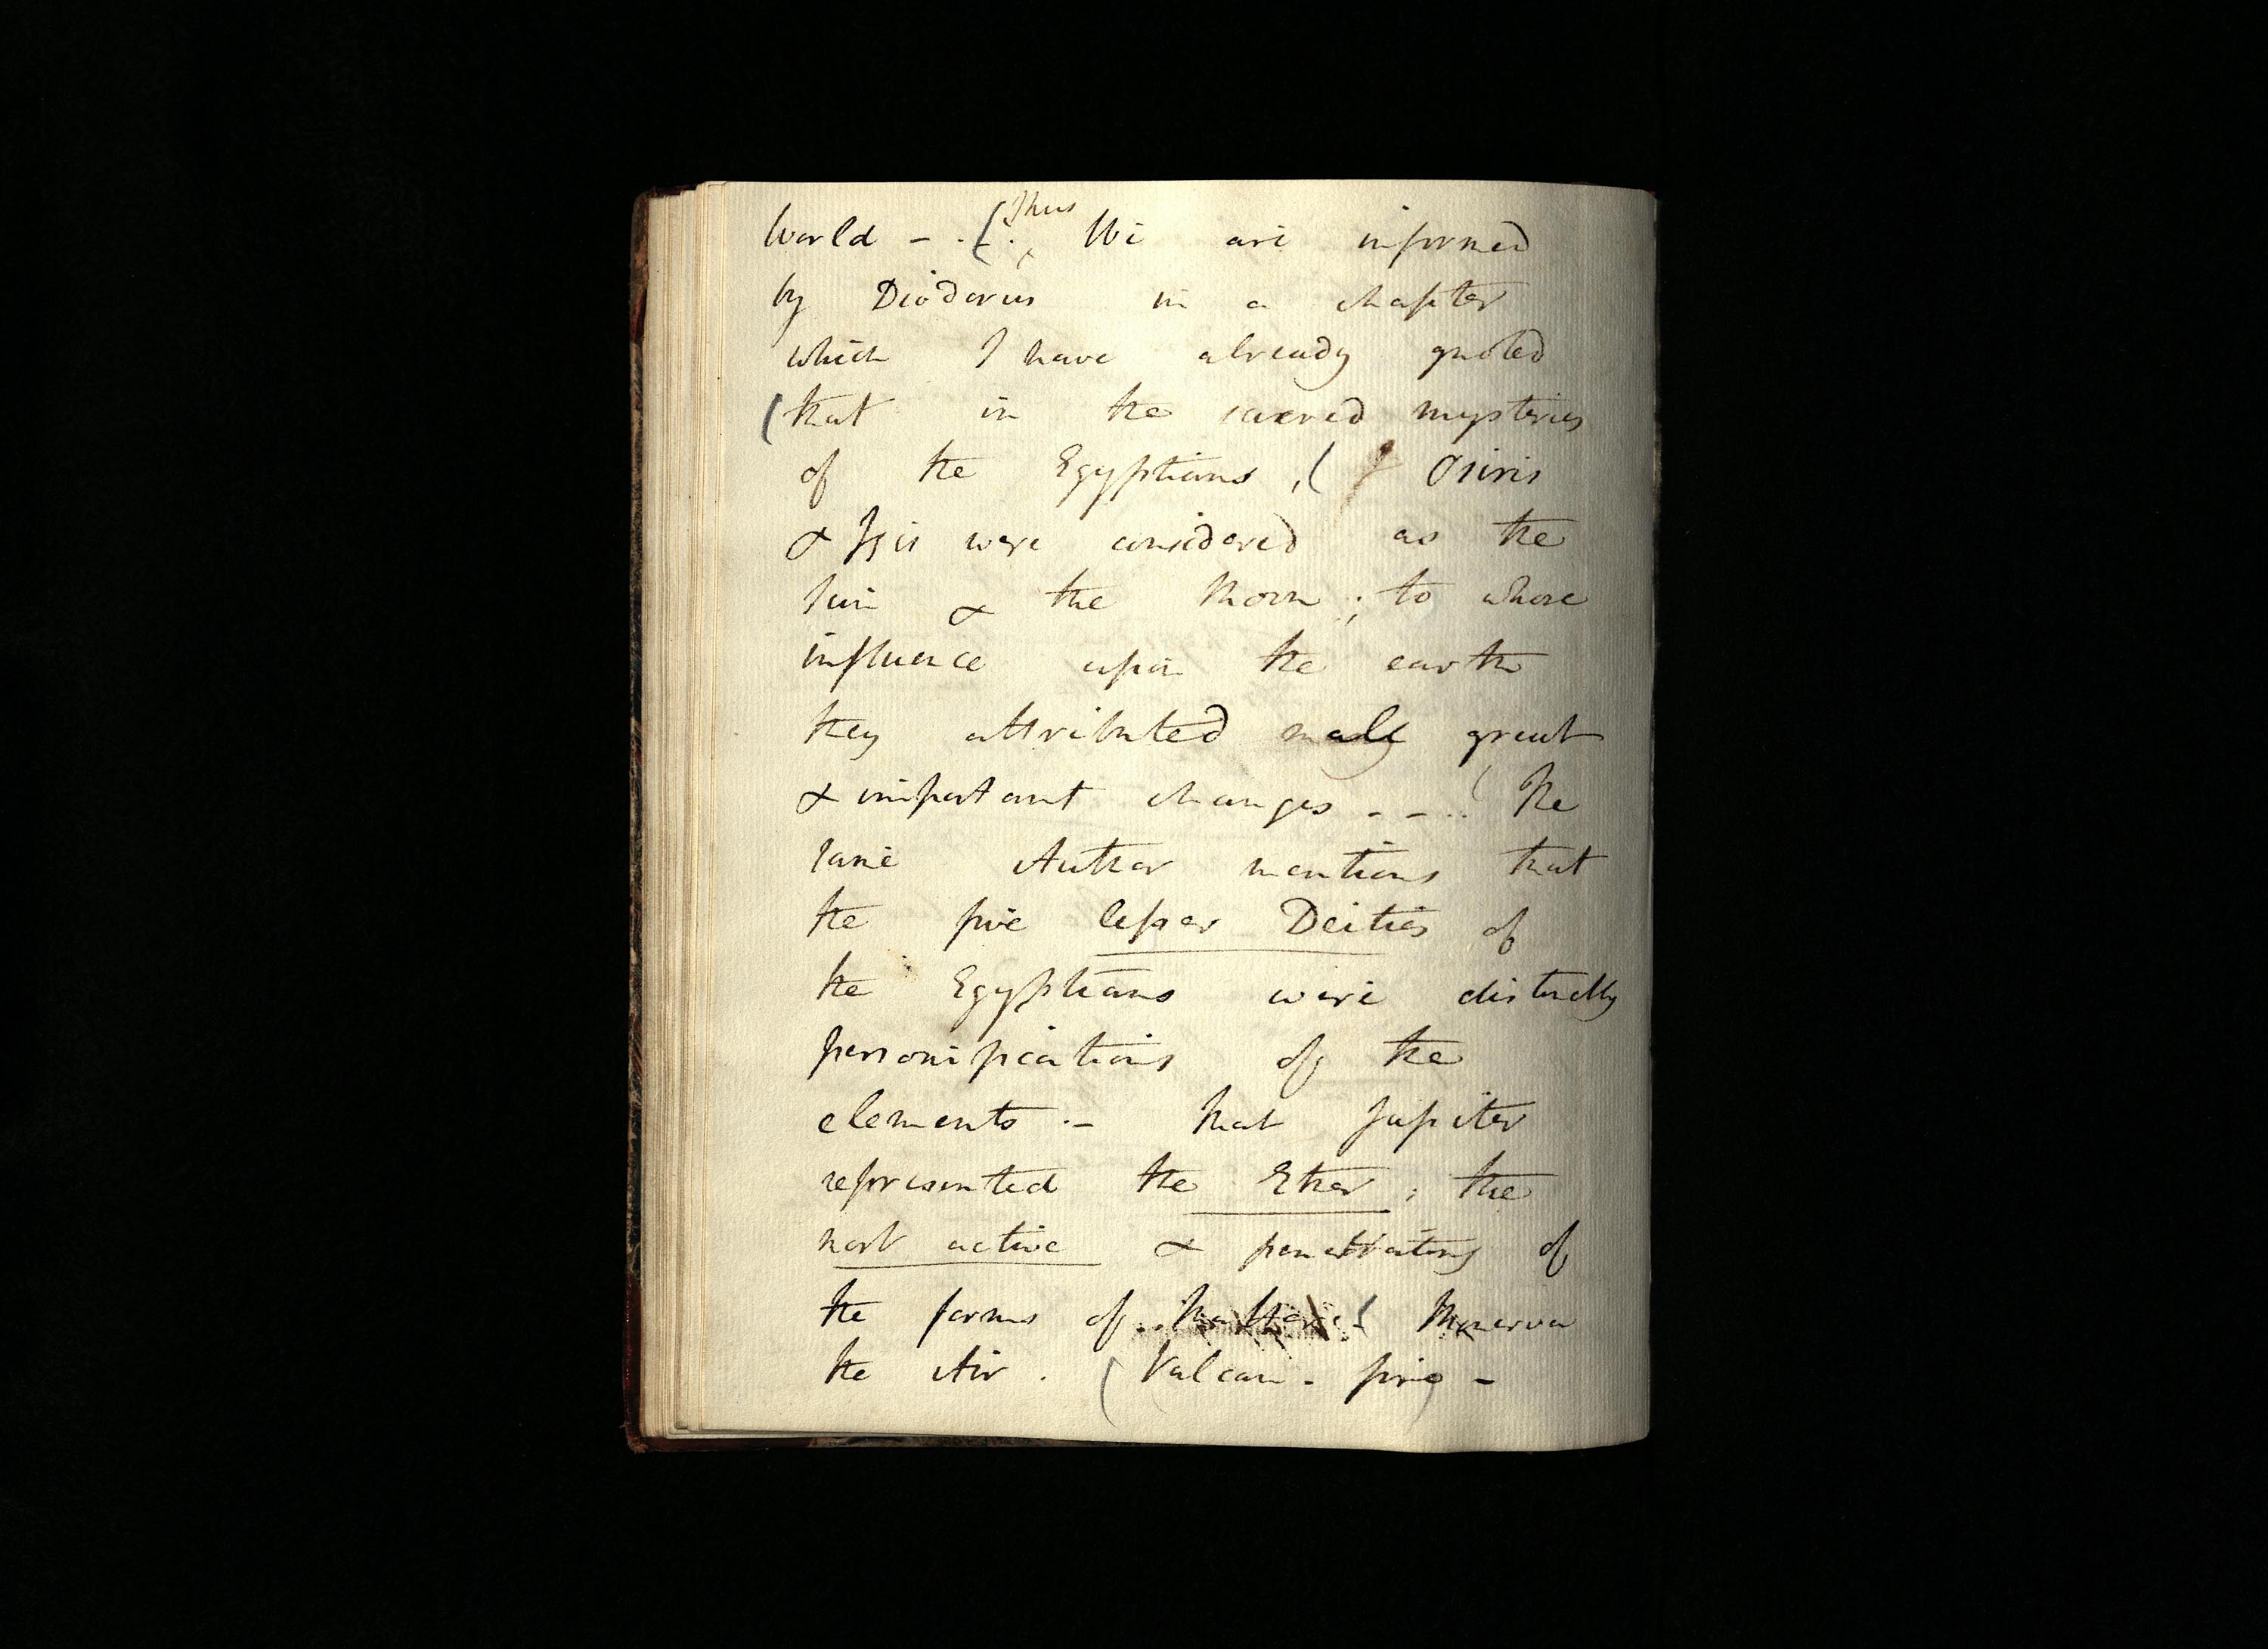 World - . ( Thus We are informed
by Diodorus in a chapter
which I have already quoted
(that in the sacred mysteries
of the Egyptians, ( Osiris
& Isis were considered as the
Sun & the Moon; to whose
influence upon the earth
they attributed many great
& important changes - - . ( The
same Author mentions that
the five lesser Deities of
the Egyptians were distinctly
personifications of the
elements .- that Jupiter
represented the Ether; the
most active & penetrating of
the forms of Matter. ( Minerva
the Air . ( Vulcan - fire -